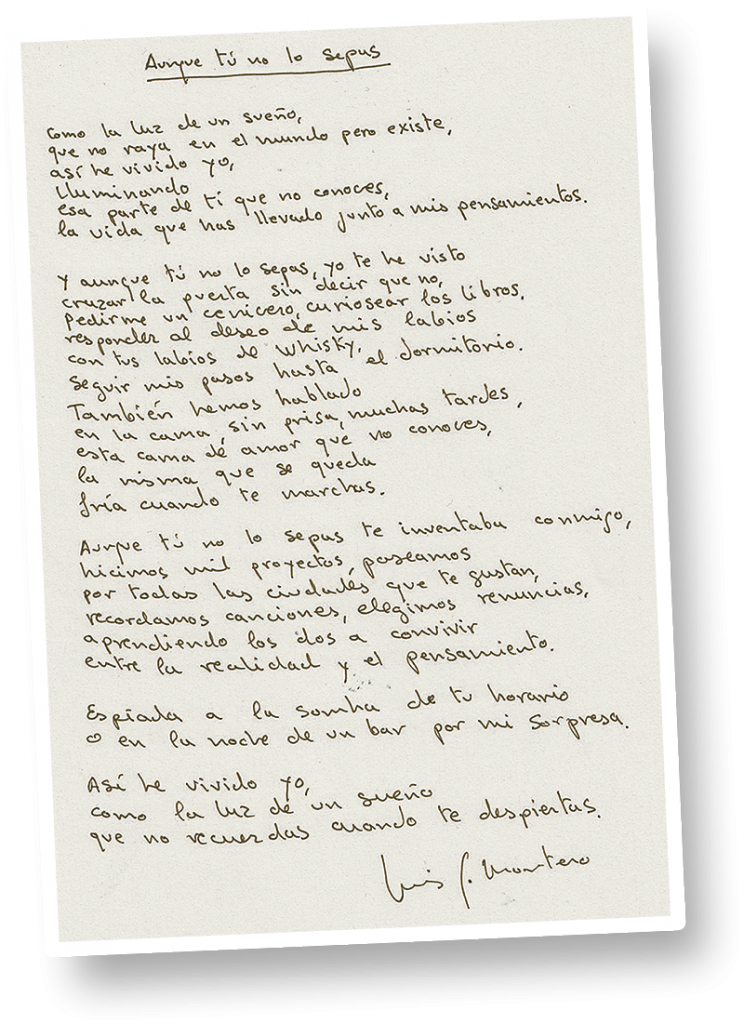 Aunque tú no lo sepas
Como la luz de un sueño,
que no raya en el mundo pero existe,
así he vivido yo,
Iluminando
esa parte de ti que no conoces,
la vida que has llevado junto a mis pensamientos.
Y aunque tú no lo sepas, yo te he visto
cruzar la puerta sin decir que no,
pedirme un cenicero, curiosear los libros,
responder al deseo de mis labios
con tus labios de whisky,
seguir mis pasos hasta el dormitorio.
También hemos hablado
en la cama, sin prisa, muchas tardes,
esta cama de amor que no conoces,
la misma que se queda
fría cuando te marchas.
Aunque tú no lo sepas te inventaba conmigo,
hicimos mil proyectos, paseamos
por todas las ciudades que te gustan,
recordamos canciones, elegimos renuncias,
aprendiendo los dos a convivir
entre la realidad y el pensamiento.
Espiada a la sombra de tu horario
o en la noche de un bar por mi sorpresa.
Así he vivido yo,
como la luz de un sueño
que no recuerdas cuando te despiertas.
Luis G. Montero